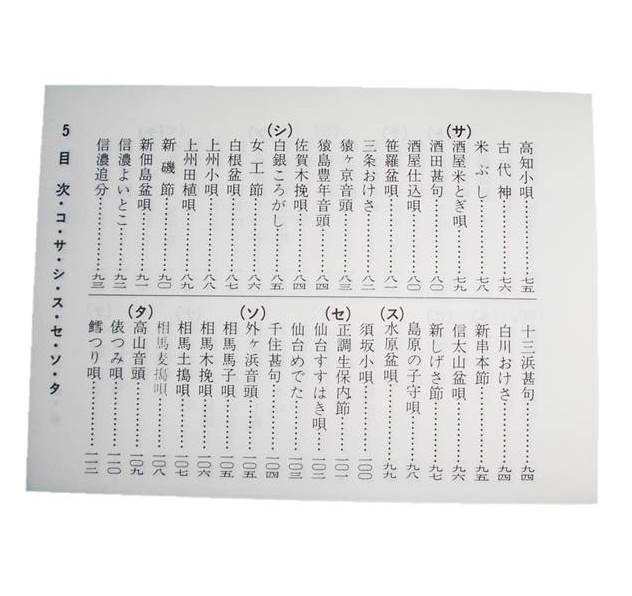 高知小唄……七五
古代神……七六
米ぶし……七八
(サ)
酒屋米とぎ唄……七九
酒田甚句……八〇
酒屋仕込唄……八〇
笹羅盆唄……八一
三条おけさ……八二
猿ヶ京音頭……八三
猿島豊年音頭……八四
佐賀木挽唄……八四
(シ)
白銀ころがし……八五
女工節……八六
白根盆唄……八七
上州小唄……八八
上州田植唄……八九
新磯節……九〇
新佃島盆唄……九一
信濃よいとこ……九二
信濃追分……九三
十三浜甚句……九四
白川おけさ……九四
新串本節……九五
信太山盆唄……九六
新しげさ節……九七
島原の子守唄……九八
(ス)
水原盆唄……九九
須坂小唄……一〇〇
(セ)
正調生保内節……一〇一
仙台すすはき唄……一〇二
仙台めでた……一〇三
千住甚句……一〇四
(ソ)
外ヶ浜音頭……一〇五
相馬馬子唄……一〇五
相馬木挽唄……一〇六
相馬土搗唄……一〇七
相馬麦搗唄……一〇八
(タ)
高山音頭……一〇九
俵つみ唄……一一〇
鱈つり唄……一一二
5 目次・コ・サ・シ・ス・セ・ソ・タ